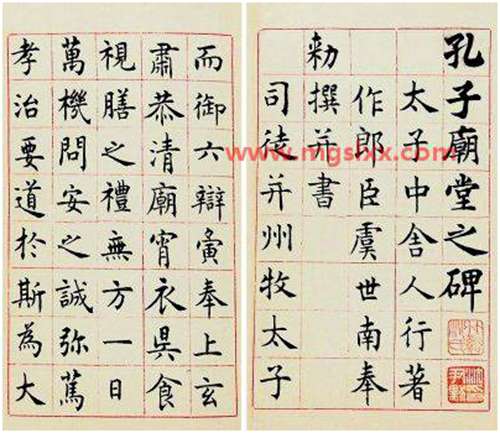 孔子廟堂之碑
太子中舍人行著
作郎臣虞世南奉
勑撰并書
司徒并州牧太子
而御六辯夤奉上玄
肅恭清廟宵衣昃食
視膳之禮無方一日
萬機問安之誠弥篤
孝治要道於斯為大
www.mgslxx.com